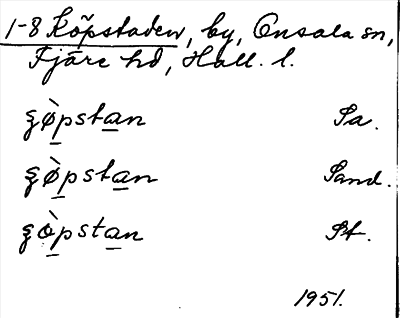 1-8 Köpstaden, by, Onsala sn,
Fjäre hd, Hall. l.
ʒø̀pstan Sa.
ʒø̀pstan Sand.
ʒòpstan St.
1951.